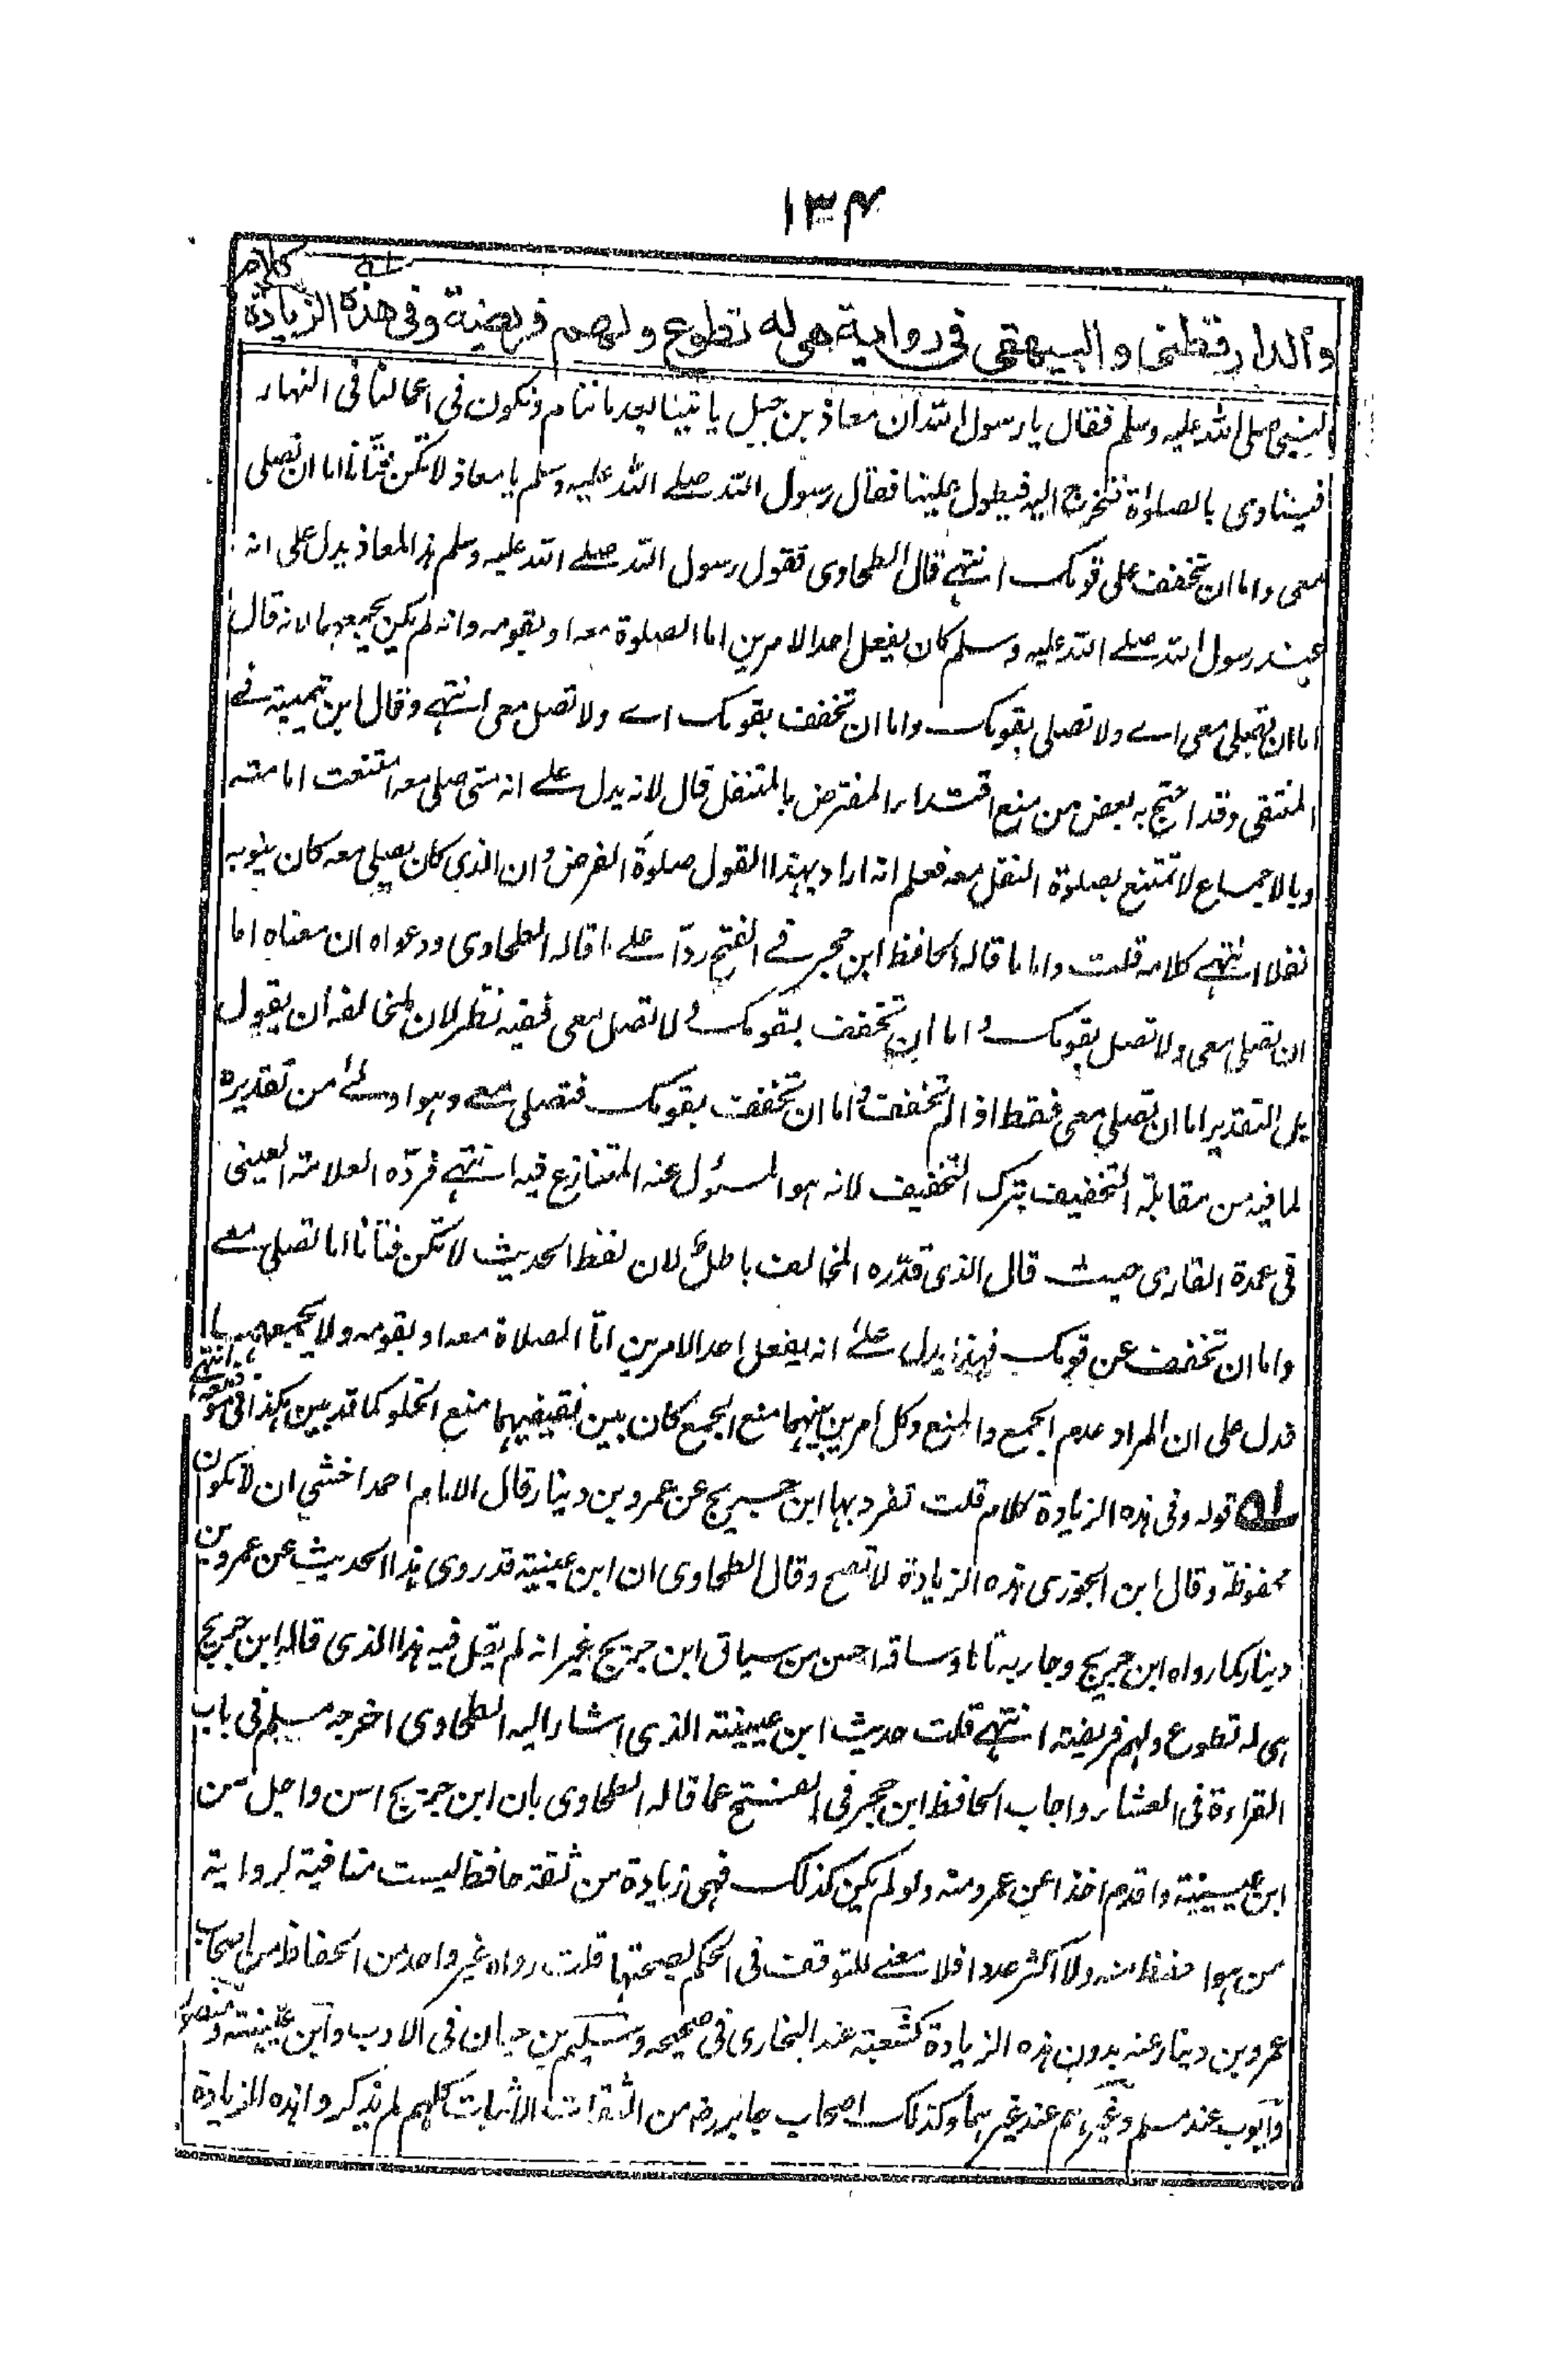 ١٣٤
والدارقطني والبيهقي في رواية هي له تطوع ولهم فريضة وفي هذه الزيادة كلام له
النبي صلى الله عليه وسلم فقال يا رسول الله ان معاذ بن جبل ياتينا بعد ما ننام ونكون في اعمالنا في النهار
فينادى بالصلوٰة فنخرج اليه فيطول علينا فقال رسول الله صلے الله عليه وسلم يا معاذ لا تكن فتّانا اما ان تصلى
معى واما ان تخفف على قومك انتهے قال الطحاوى فقول رسول الله صلے الله عليه وسلم هذا لمعاذ يدل على انه
عند رسول الله صلے الله عليه وسلم كان يفعل احد الامرين اما الصلوة معه او بقومه وانه لم يكن يجمعهما لانه قال
اما ان تصلى معى اے ولا تصلى بقومك واما ان تخفف بقومك اے ولا تصل معى انتهے وقال ابن تيمية فے
المنتقى وقد احتج به بعض من منع اقتداء المفترض بالمتنفل قال لانه يدل علے انه متى صلى معه امتنعت امامته
وبالاجماع لا تمتنع بصلوة النفل معه فعلم انه اراد بهذا القول صلوة الفرض وان الذى كان يصلى معه كان ينويه
نفلا انتهے كلامه قلت واما ما قاله الحافظ ابن حجر فے الفتح ردّا علے ما قاله الطحاوى ودعواه ان معناه اما
ان تصلى معى ولا تصل بقومك واما ان تخفف بقومك ولا تصل معى ففيه نظر لان لمخالفه ان يقول
بل التقدير اما ان تصلى معى فقط اذا لم تخفف واما ان تخفف بقومك فتصلى معے وهو اولےٰ من تقديره
لما فيه من مقابلة التخفيف بترك التخفيف لانه هو المسئول عنه المتنازع فيه انتهے فردّه العلامة العينى
فى عمدة القارى حيث قال الذى قدّره المخالف باطل لان لفظ الحديث لا تكن فتّانا اما تصلى معے
واما ان تخفف عن قومك فهذا يدل علےٰ انه يفعل احد الامرين امّا الصلاة معه او بقومه ولا يجمعهما انتهے
فدل على ان المراد عدم الجمع والمنع وكل امرين بينهما منع الجمع كان بين نقيضيهما منع الخلو كما قد بين هكذا فى موضعه
له قوله وفى هذه الزيادة كلام قلت تفرد بها ابن جريج عن عمرو بن دينار قال الامام احمد اخشي ان لا تكون
محفوظة وقال ابن الجوزى هذه الزيادة لا تصح وقال الطحاوى ان ابن عيينة قد روى هذا الحديث عن عمرو بن
دينار كما رواه ابن جريج وجاء به تاما وساقه احسن من سياق ابن جريج غير انه لم يقل فيه هذا الذى قاله ابن جريج
هى له تطوع ولهم فريضة انتهے قلت حديث ابن عيينة الذى اشار اليه الطحاوى اخرجه مسلم فى باب
القراءة فى العشاء واجاب الحافظ ابن حجر فى الفتح عما قاله الطحاوى بان ابن جريج اسن واجل من
ابن عيينة واقدم اخذا عن عمرو منه ولو لم يكن كذلك فهى زيادة من ثقة حافظ ليست منافية لرواية
من هو احفظ منه ولا اكثر عددا فلا معنے للتوقف فى الحكم بصحتها قلت رواه غير واحد من الحفاظ من اصحاب
عمرو بن دينار عنه بدون هذه الزيادة كشعبة عند البخارى فى صحيحه وسليم بن حيان فى الادب وابن عيينة ومنصور
وايوب عند مسلم وغيرهم عند غيرهما وكذلك اصحاب جابر رضه من الثقات الاثبات كلهم لم يذكروا هذه الزيادة